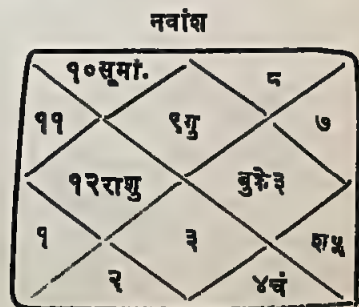 नवांश
१०सूमां. ८
११ ९गु ७
१२राशु बुके३
१ ३ श५
२ ४चं